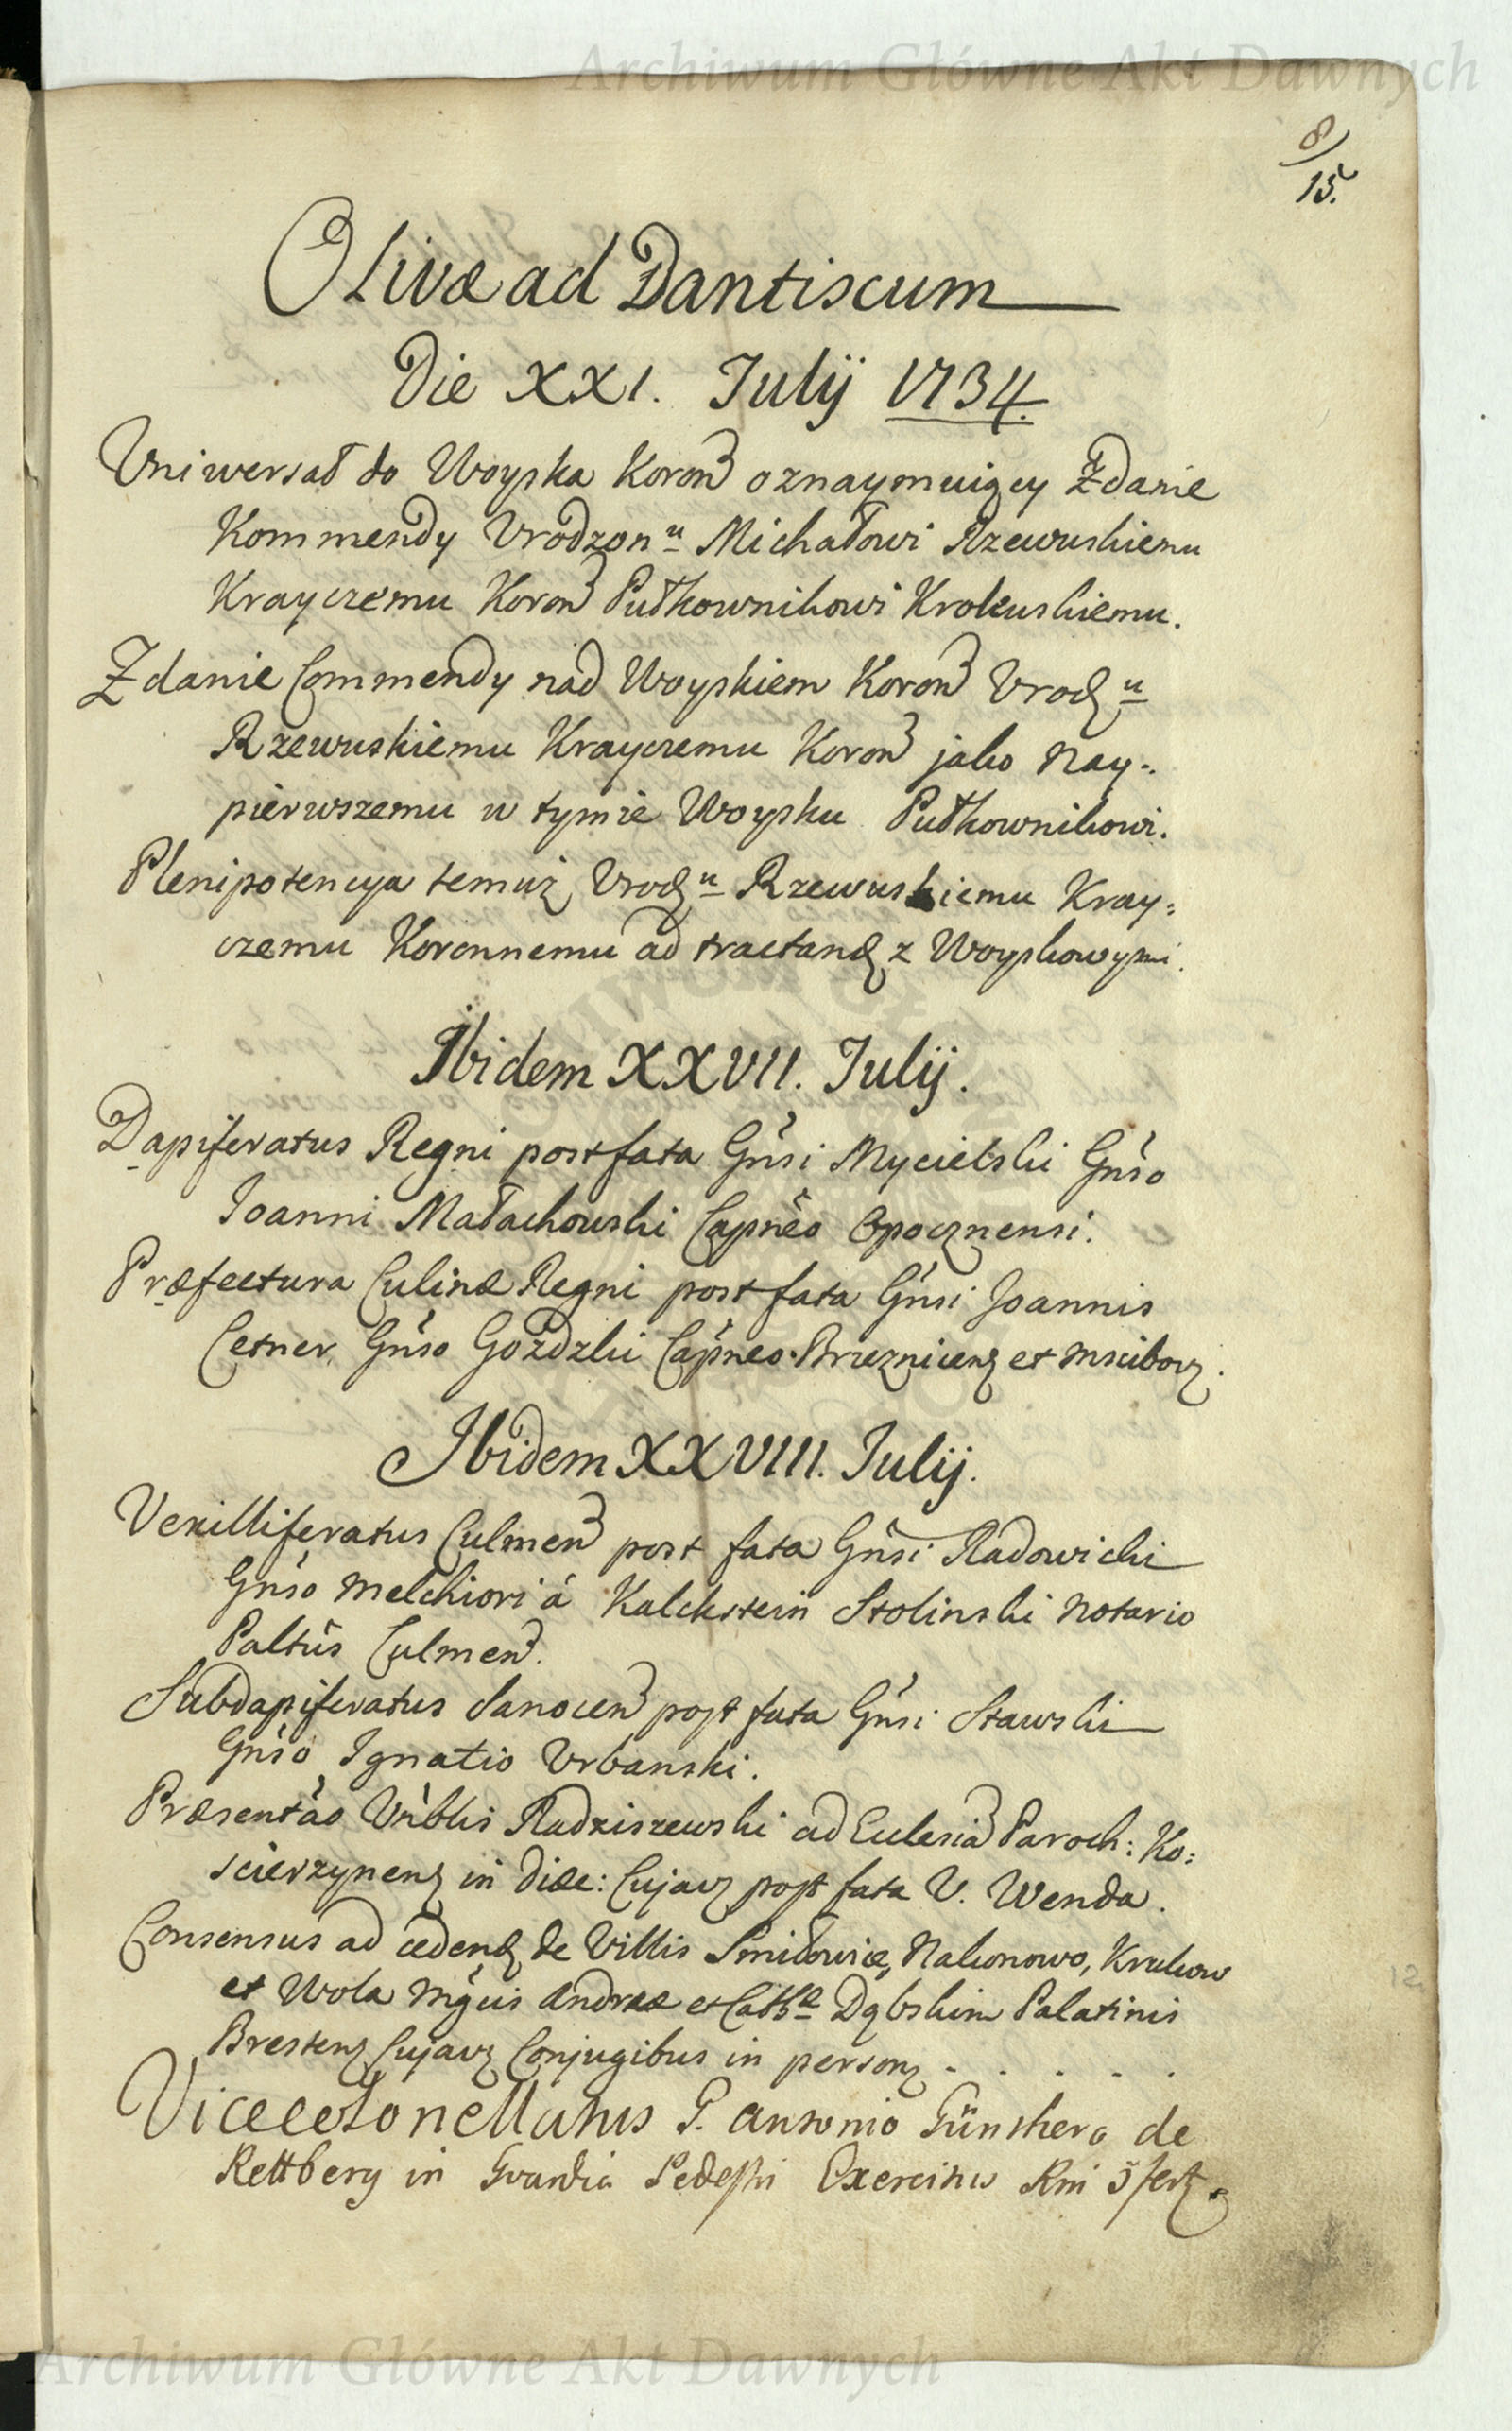 Archiwum Główne Akt Dawnych
8
15.
Olivæ ad Dantiscum
Die XXI. Julij 1734.
Vniwersał do Woyska Koron oznaymuiący Zdanie
Kommendy Vrodzonu Michałowi Rzewuskiemu
Krayczemu Koron Pułkownikowi Krolewskiemu.
Zdanie Commendy nad Woyskiem Koron Vrodzu
Rzewuskiemu Krayczemu Koron jako Nay-
pierwszemu w tymże Woysku Pułkownikowi.
Plenipotencya temuż Vrodzu Rzewuskiemu Kray:
czemu Koronnemu ad tractand z Woyskowymi.
Ibidem XXVII. Julij.
Dapiferatus Regni post fata Gnsi Mycielski Gnso
Joanni Małachowski Capneo Opocznensi.
Præfectura Culinæ Regni post fata Gnsi Joannis
Cetner Gnso Gozdzki Capneo Brzeznicens et Mscibow.
Ibidem XXVIII. Julij.
Vexilliferatus Culmen post fata Gnsi Radowicki
Gnso Melchiori á Kalckstein Stolinski Notario
Paltus Culmen.
Subdapiferatus Sanocen post fata Gnsi Stawski
Gnso Ignatio Vrbanski.
Præsentao Vnblis Radziszewski ad Ecclesia Paroch: Ko:
scierzynens in Diæc: Cujav post fata V. Wenda.
Consensus ad cedend de Villis Smiłowice, Nakonowo, Krukow
et Wola Mgcis Andreæ et Cathæ Dąbskim Palatinis
Brestens Cujav Conjugibus in person . . . . .
Vicecolonellatus G. Antonio Günthero de
Rettberg in Gvardia Pedestri Exercitus Rni
12
Archiwum Główne Akt Dawnych